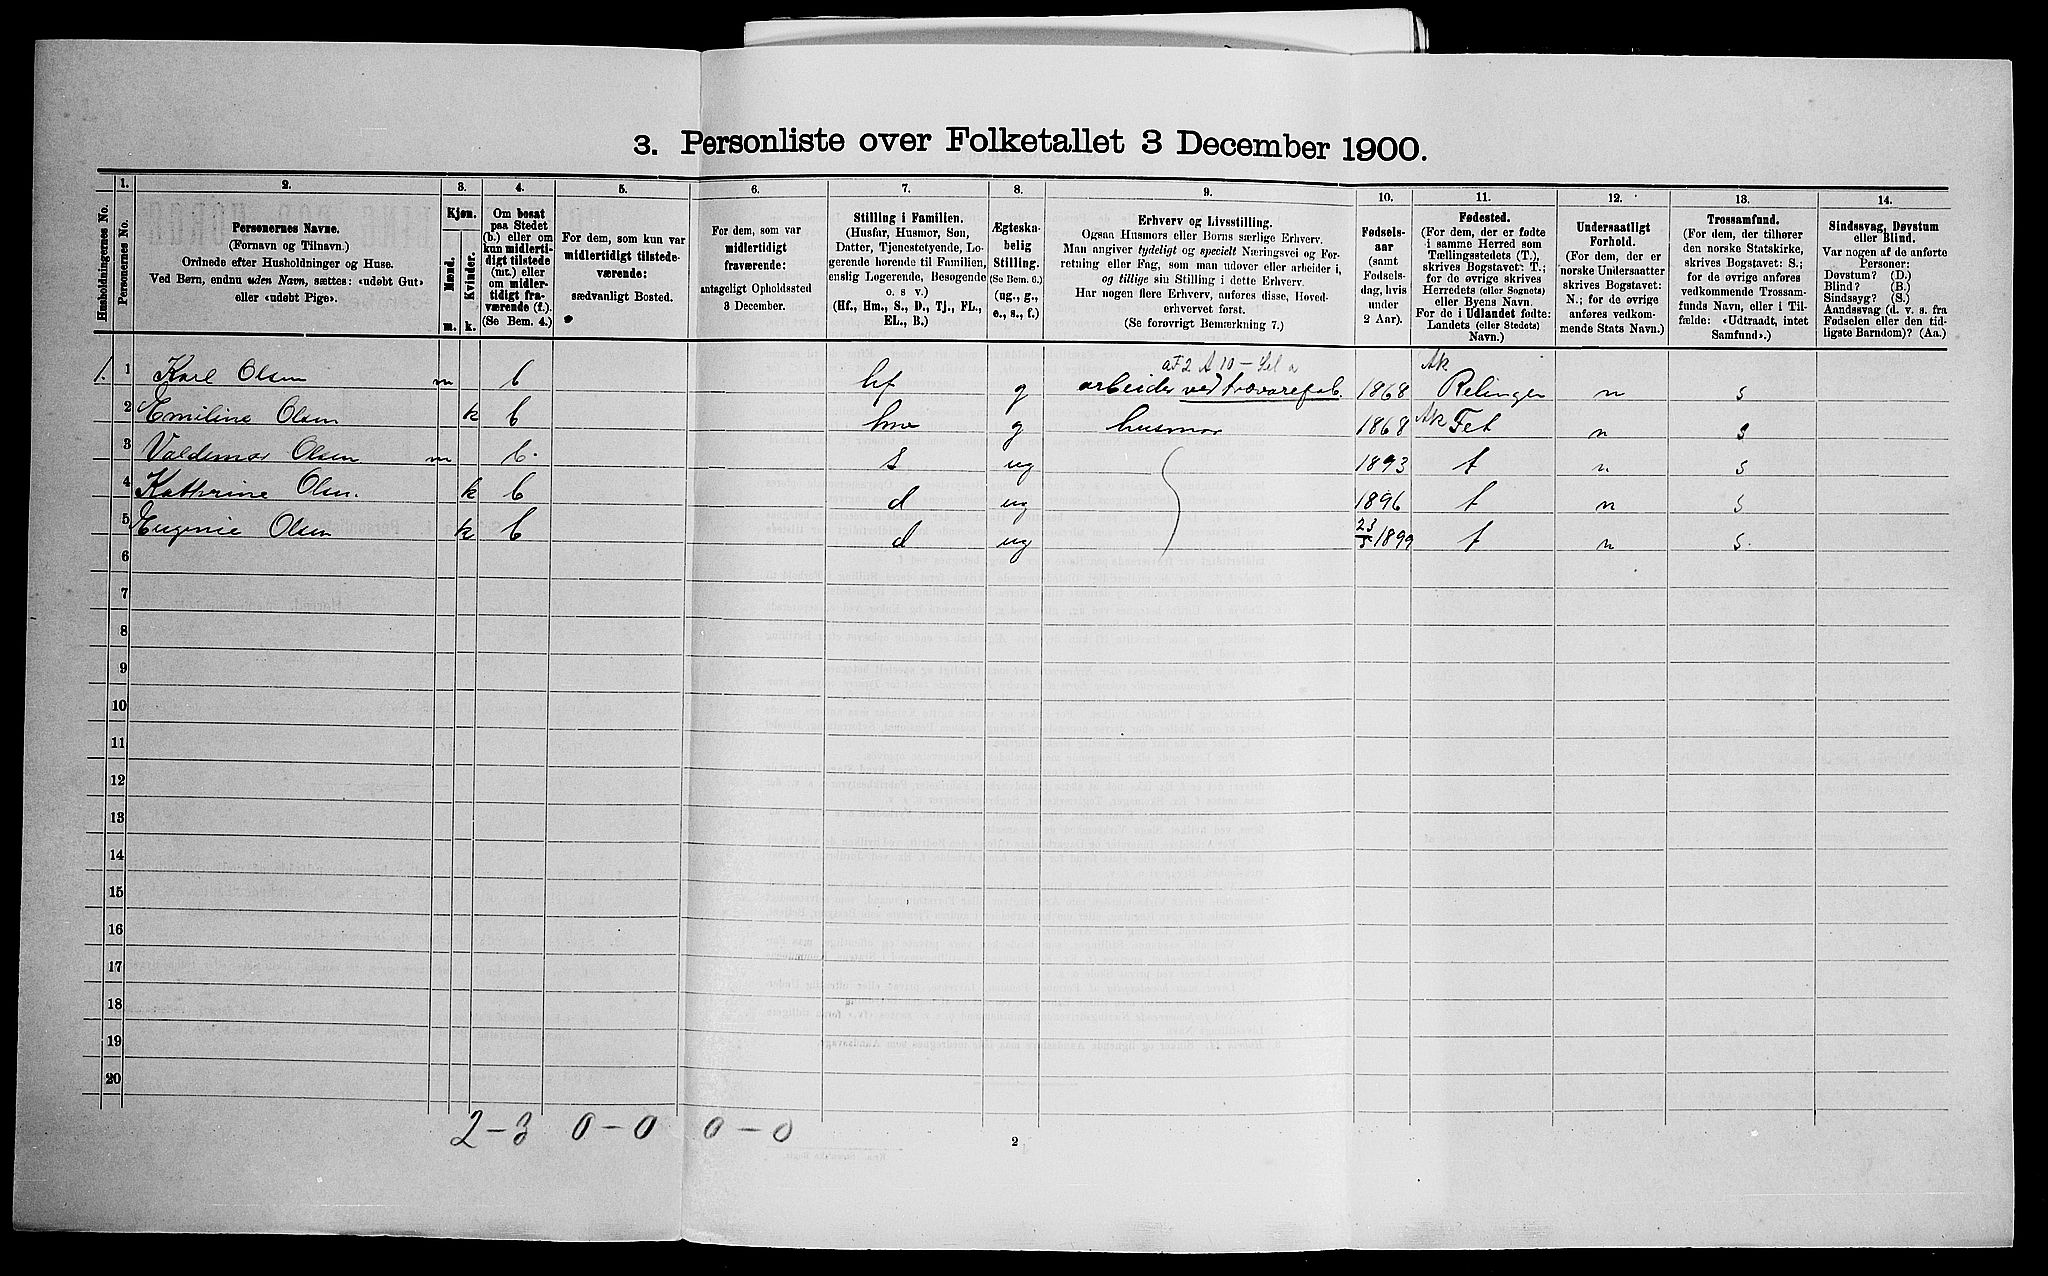 3. Personliste over Folketallet 3 December 1900.
1. 2. 3. 4. 5. 6. 7. 8. 9. 10. 11. 12. 13. 14.
Husholdningernes No.
Personernes No.
Personernes Navne.
(Fornavn og Tilnavn.)
Ordnede efter Husholdninger og Huse.
Ved Børn, endnu uden Navn, sættes: «udøbt Gut»
eller «udøbt Pige».
Kjøn.
Mænd.
Kvinder.
m. k.
Om bosat
paa Stedet
(b.) eller om
kun midlerti-
digt tilstede
(mt.) eller
om midler-
tidigt fra-
værende (f.).
(Se Bem. 4.)
For dem, som kun var
midlertidigt tilstede-
værende:
sædvanligt Bosted.
For dem, som var
midlertidigt
fraværende:
antageligt Opholdssted
3 December.
Stilling i Familien.
(Husfar, Husmor, Søn,
Datter, Tjenestetyende, Lo-
gerende hørende til Familien,
enslig Logerende, Besøgende
o. s v.)
(Hf., Hm., S., D., Tj., FL.,
EL., B.)
Ægteska-
belig
Stilling.
(Se Bem. 6.)
(ug., g.,
e., s., f.)
Erhverv og Livsstilling.
Ogsaa Husmors eller Børns særlige Erhverv.
Man angiver tydeligt og specielt Næringsvei og For-
retning eller Fag, som man udøver eller arbeider i,
og tillige sin Stilling i dette Erhverv.
Har nogen flere Erhverv, anføres disse, Hoved-
erhvervet først.
(Se forøvrigt Bemærkning 7.)
Fødsels-
aar
(samt
Fødsels-
dag, hvis
under
2 Aar).
Fødested.
(For dem, der er fødte
i samme Herred som
Tællingsstedets (T.),
skrives Bogstavet: T.;
for de øvrige skrives
Herredets (eller Sognets)
eller Byens Navn.
For de i Udlandet fødte:
Landets (eller Stedets)
Navn.)
Undersaatligt
Forhold.
(For dem, der er
norske Undersaatter
skrives Bogstavet:
N.; for de øvrige
anføres vedkom-
mende Stats Navn.)
Trossamfund.
(For dem, der tilhører
den norske Statskirke,
skrives Bogstavet: S.;
for de øvrige anføres
vedkommende Trossam-
funds Navn, eller i Til-
fælde: «Udtraadt, intet
Samfund».)
Sindssvag, Døvstum
eller Blind.
Var nogen af de anførte
Personer:
Døvstum? (D.)
Blind? (B.)
Sindssyg? (S.)
Aandssvag (d. v. s. fra
Fødselen eller den tid-
ligste Barndom)? (Aa.)
1. 1 Karl Olsen m b hf g arbeider ved trævarefab. 1868 Ak Relingen n s
2 Emiline Olsen k b hm g husmor 1868 Ak Fet n s
3 Valdemar Olsen m b. s ug 1893 t n s
4 Kathrine Olsen. k b d ug 1896 t n s
5 Eugenie Olsen k b d ug 23/5 1899 t n s.
6
7
8
9
10
11
12
13
14
15
16
17
18
19
20
2-3 0-0 0-0
2